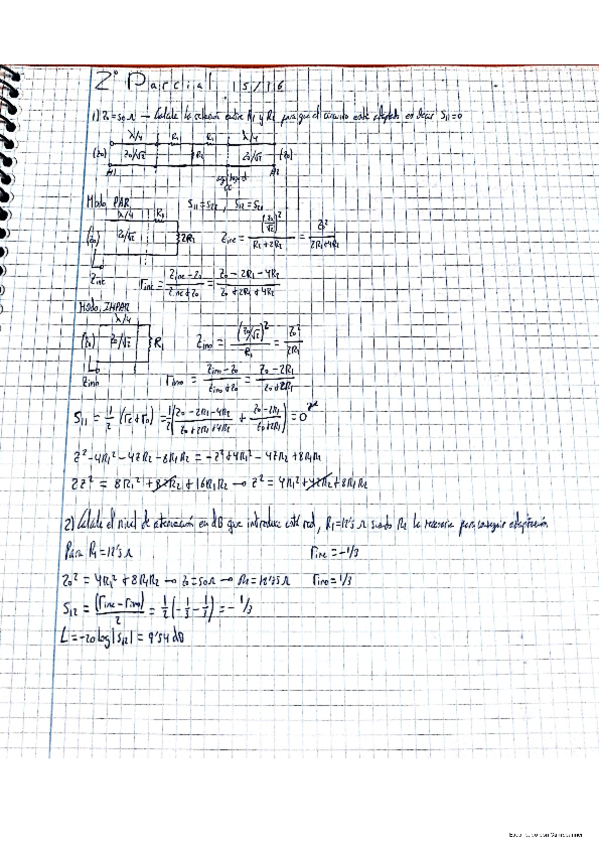 2º Parcial 15/16
1) Z0=50Ω → Calcule la relación entre R1 y R2 para que el circuito esté adaptado, es decir S11=0
λ/4 R1 R1 λ/4
(Z0) Z0/√2 R2 Z0/√2 (Z0)
Modo PAR S11=S22, S12=S21
λ/4 R1
(Z0) Z0/√2 2R2 Zine = (Z0/√2)²/(R1+2R2) = Z0²/(2R1+4R2)
Zine Γine = (Zine-Z0)/(Zine+Z0) = (Z0-2R1-4R2)/(Z0+2R1+4R2)
Modo IMPAR
λ/4
(Z0) Z0/√2 R1 Zino = (Z0/√2)²/R1 = Z0²/2R1
Γino = (Zino-Z0)/(Zino+Z0) = (Z0-2R1)/(Z0+2R1)
S11 = 1/2 (Γe+Γo) = 1/2 ((Z0-2R1-4R2)/(Z0+2R1+4R2) + (Z0-2R1)/(Z0+2R1)) = 0
Z²-4R1²-4ZR2-8R1R2 = -Z²+4R1²-4ZR2+8R1R2
2Z² = 8R1²+8ZR2+16R1R2 → Z² = 4R1²+4ZR2+8R1R2
2) Calcule el nivel de atenuación en dB que introduce esta red, R1=12'5Ω siendo R2 la necesaria para conseguir adaptación
Para R1=12'5Ω Γine=-1/3
Z0² = 4R1²+8R1R2 → Z0=50Ω → R2=18'75Ω Γino=1/3
S12 = (Γine-Γino)/2 = 1/2(-1/3-1/3) = -1/3
L=-20log|S12| = 9'54dB